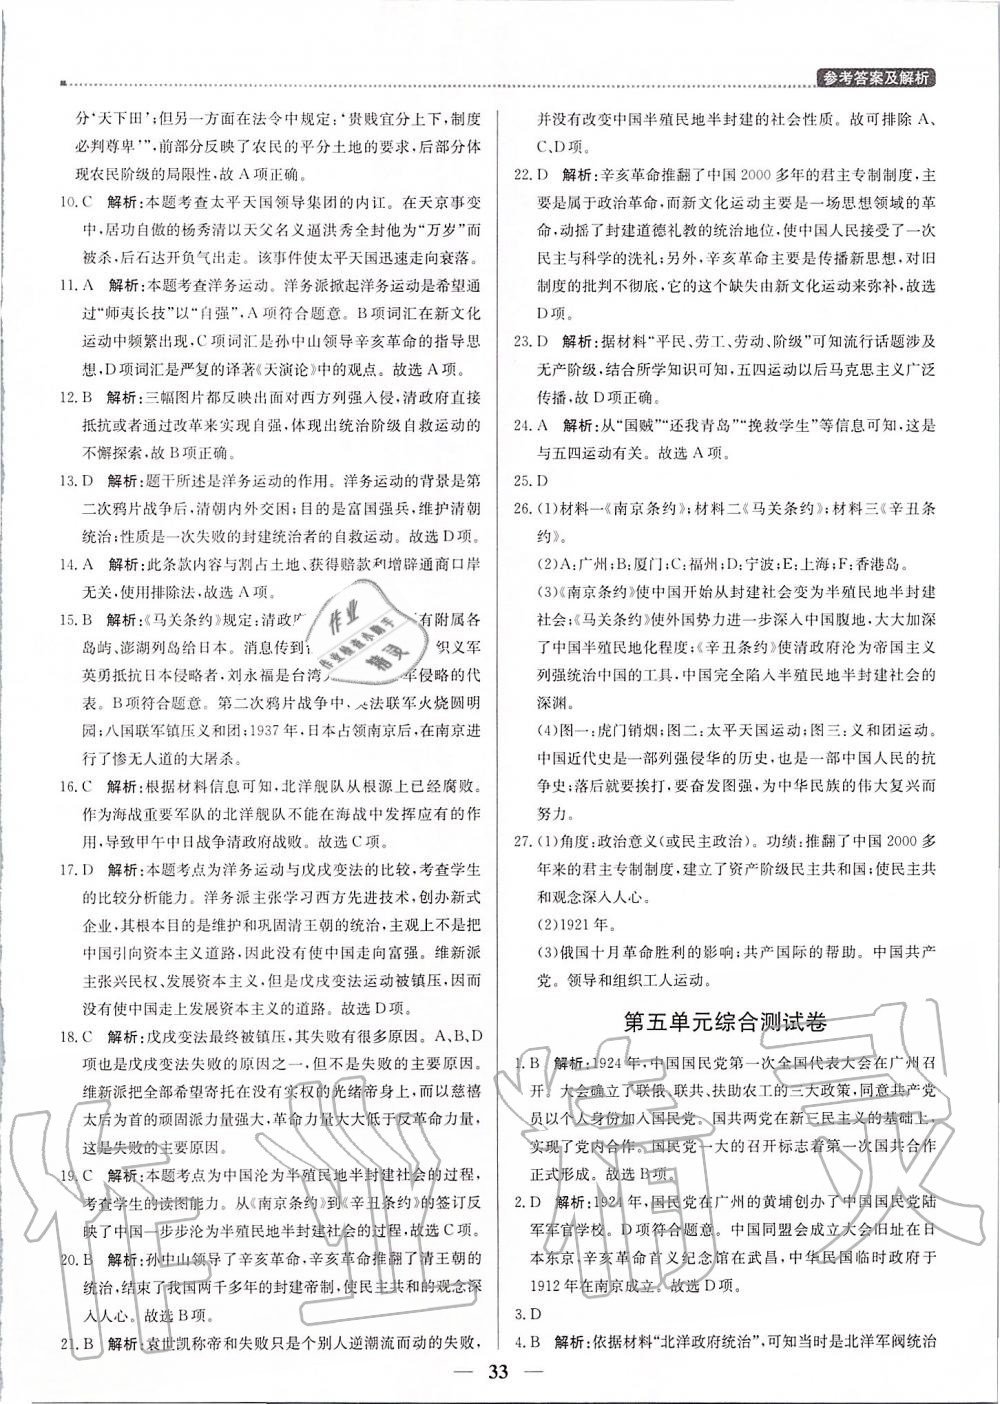 参考答案及解析
分‘天下田’;但另一方面在法令中规定:‘贵贱宜分上下,制度
必判尊卑’”,前部分反映了农民的平分土地的要求,后部分体
现农民阶级的局限性,故A项正确。
10. C 解析:本题考查太平天国领导集团的内讧。在天京事变
中,居功自傲的杨秀清以天父名义逼洪秀全封他为“万岁”而
被杀,后石达开负气出走。该事件使太平天国迅速走向衰落。
11. A 解析:本题考查洋务运动。洋务派掀起洋务运动是希望通
过“师夷长技”以“自强”,A项符合题意。B项词汇在新文化
运动中频繁出现,C项词汇是孙中山领导辛亥革命的指导思
想,D项词汇是严复的译著《天演论》中的观点。故选A项。
12. B 解析:三幅图片都反映出面对西方列强入侵,清政府直接
抵抗或者通过改革来实现自强,体现出统治阶级自救运动的
不懈探索,故B项正确。
13. D 解析:题干所述是洋务运动的作用。洋务运动的背景是第
二次鸦片战争后,清朝内外交困;目的是富国强兵,维护清朝
统治;性质是一次失败的封建统治者的自救运动。故选D项。
14. A 解析:此条款内容与割占土地、获得赔款和增辟通商口岸
无关,使用排除法,故选A项。
15. B 解析:《马关条约》规定:清政府 有附属各
岛屿、澎湖列岛给日本。消息传到 织义军
英勇抵抗日本侵略者,刘永福是台湾 军侵略的代
表。B项符合题意。第二次鸦片战争中,英法联军火烧圆明
园;八国联军镇压义和团;1937年,日本占领南京后,在南京进
行了惨无人道的大屠杀。
16. C 解析:根据材料信息可知,北洋舰队从根源上已经腐败。
作为海战重要军队的北洋舰队不能在海战中发挥应有的作
用,导致甲午中日战争清政府战败。故选C项。
17. D 解析:本题考点为洋务运动与戊戌变法的比较,考查学生
的比较分析能力。洋务派主张学习西方先进技术,创办新式
企业,其根本目的是维护和巩固清王朝的统治,主观上不是把
中国引向资本主义道路,因此没有使中国走向富强。维新派
主张兴民权、发展资本主义,但是戊戌变法运动被镇压,也就
没有使中国走上发展资本主义的道路。故选D项。
18. C 解析:戊戌变法最终被镇压,其失败有很多原因。A、B、D
项也是戊戌变法失败的原因之一,但不是其失败的主要原因。
维新派把全部希望寄托在没有实权的光绪帝身上,而以慈禧
太后为首的顽固派力量强大,革命力量大大低于反革命力量,
这是失败的主要原因。
19. C 解析:本题考点为中国沦为半殖民地半封建社会的过程,
考查学生的读图能力。从《南京条约》到《辛丑条约》的签订反
映了中国一步步沦为半殖民地半封建社会的过程,故选C项。
20. B 解析:孙中山领导了辛亥革命,辛亥革命推翻了清王朝的
统治,结束了我国两千多年的封建帝制,使民主共和的观念深
入人心。故选B项。
21. B 解析:袁世凯称帝和失败只是个别人逆潮流而动的失败,
并没有改变中国半殖民地半封建的社会性质。故可排除A、
C、D项。
22. D 解析:辛亥革命推翻了中国2000多年的君主专制制度,主
要是属于政治革命,而新文化运动主要是一场思想领域的革
命,动摇了封建道德礼教的统治地位,使中国人民接受了一次
民主与科学的洗礼;另外,辛亥革命主要是传播新思想,对旧
制度的批判不彻底,它的这个缺失由新文化运动来弥补,故选
D项。
23. D 解析:据材料“平民、劳工、劳动、阶级”可知流行话题涉及
无产阶级,结合所学知识可知,五四运动以后马克思主义广泛
传播,故D项正确。
24. A 解析:从“国贼”“还我青岛”“挽救学生”等信息可知,这是
与五四运动有关。故选A项。
25. D
26. (1)材料一《南京条约》;材料二《马关条约》;材料三《辛丑条
约》。
(2)A:广州;B:厦门;C:福州;D:宁波;E:上海;F:香港岛。
(3)《南京条约》使中国开始从封建社会变为半殖民地半封建
社会;《马关条约》使外国势力进一步深入中国腹地,大大加深
了中国半殖民地化程度;《辛丑条约》使清政府沦为帝国主义
列强统治中国的工具,中国完全陷入半殖民地半封建社会的
深渊。
(4)图一:虎门销烟;图二:太平天国运动;图三:义和团运动。
中国近代史是一部列强侵华的历史,也是一部中国人民的抗
争史;落后就要挨打,要奋发图强,为中华民族的伟大复兴而
努力。
27. (1)角度:政治意义(或民主政治)。功绩:推翻了中国2000多
年来的君主专制制度,建立了资产阶级民主共和国;使民主共
和观念深入人心。
(2)1921年。
(3)俄国十月革命胜利的影响;共产国际的帮助。中国共产
党。领导和组织工人运动。
第五单元综合测试卷
1. B 解析:1924年,中国国民党第一次全国代表大会在广州召
开。大会确立了联俄、联共、扶助农工的三大政策,同意共产党
员以个人身份加入国民党。国共两党在新三民主义的基础上,
实现了党内合作。国民党一大的召开标志着第一次国共合作
正式形成。故选B项。
2. D 解析:1924年,国民党在广州的黄埔创办了中国国民党陆
军军官学校。D项符合题意。中国同盟会成立大会旧址在日
本东京,辛亥革命首义纪念馆在武昌,中华民国临时政府于
1912年在南京成立。故选D项。
3. D
4. B 解析:依据材料“北洋政府统治”,可知当时是北洋军阀统治
— 33 —
作业
作业检查小助手
精灵
作业精灵